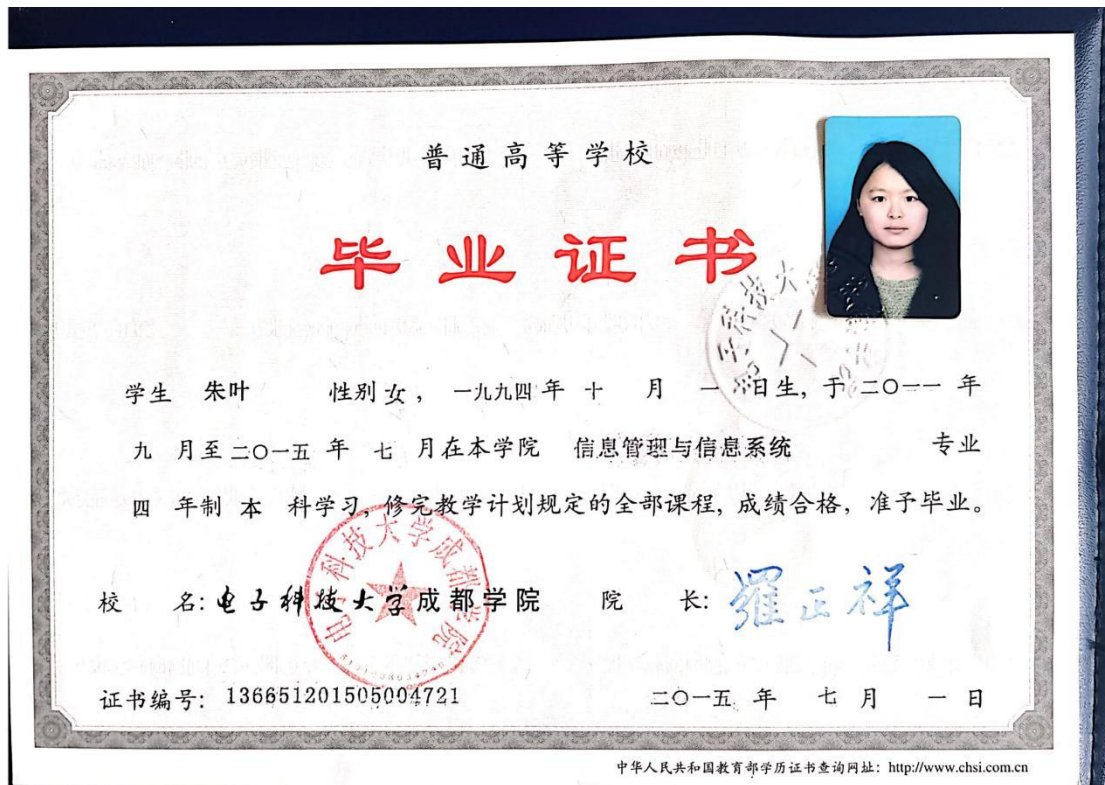 普通高等学校
毕业证书
学生 朱叶 性别 女， 一九九四 年 十 月 一 日生，于 二〇一一 年
九 月至 二〇一五 年 七 月在本学院 信息管理与信息系统 专业
四 年制 本 科学习，修完教学计划规定的全部课程，成绩合格，准予毕业。
校 名：电子科技大学成都学院 院 长：羅正祥
电子科技大学成都学院
证书编号：136651201505004721 二〇一五 年 七 月 一 日
中华人民共和国教育部学历证书查询网址：http://www.chsi.com.cn